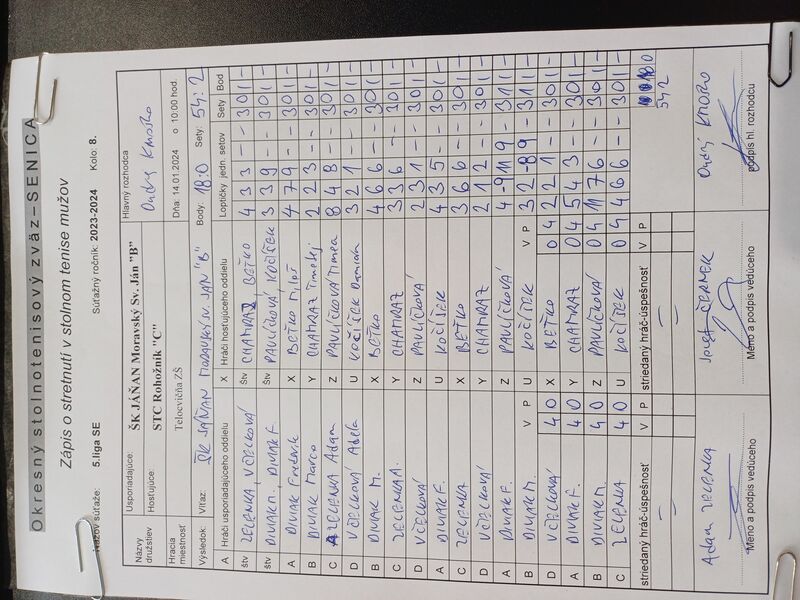 Okresný stolnotenisový zväz–SENICA
Zápis o stretnutí v stolnom tenise mužov
Názov súťaže: 5.liga SE Súťažný ročník: 2023-2024 Kolo: 8.
Názvy družstiev Usporadajúce: ŠK JÁŇAN Moravský Sv. Ján "B" Hlavný rozhodca
Hosťujúce: STC Rohožník "C" Ondrej Kmoško
Hracia miestnosť Telocvičňa ZŠ Dňa: 14.01.2024 o 10:00 hod.
Výsledok: Víťaz: ŠK JÁŇAN MORAVSKÝ SV. JÁN "B" Body: 18:0 Sety: 54:2
A Hráči usporiadajúceho oddielu X Hráči hosťujúceho oddielu Loptičky jedn. setov Sety Bod
štv ZELENKA, VČELKOVÁ Štv CHATRAZ BEŤKO 4 3 3 – – 3 0 1 –
štv DIVIAK M. DIVIAK F. Štv PAVLÍČKOVÁ, KOČÍŠEK 3 3 9 – – 3 0 1 –
A DIVIAK Frederik X BEŤKO Miloš 4 7 9 – – 3 0 1 –
B DIVIAK Marco Y CHATRAZ Timotej 2 2 3 – – 3 0 1 –
C ZELENKA Adam Z PAVLÍČKOVÁ Timea 8 4 8 – – 3 0 1 –
D VČELKOVÁ Adela U KOČÍŠEK Dominik 3 2 1 – – 3 0 1 –
B DIVIAK M. X BEŤKO 4 6 6 – – 3 0 1 –
C ZELENKA A. Y CHATRAZ 3 3 6 – – 3 0 1 –
D VČELKOVÁ Z PAVLÍČKOVÁ 2 3 1 – – 3 0 1 –
A DIVIAK F. U KOČÍŠEK 4 3 5 – – 3 0 1 –
C ZELENKA X BEŤKO 3 6 6 – – 3 0 1 –
D VČELKOVÁ Y CHATRAZ 2 1 2 – – 3 0 1 –
A DIVIAK F. Z PAVLÍČKOVÁ 4 -9 11 9 – 3 1 1 –
B DIVIAK M. V P U KOČÍŠEK V P 3 2 -8 9 – 3 1 1 –
D VČELKOVÁ 4 0 X BEŤKO 0 4 2 2 1 – – 3 0 1 –
A DIVIAK F. 4 0 Y CHATRAZ 0 4 5 4 3 – – 3 0 1 –
B DIVIAK M. 4 0 Z PAVLÍČKOVÁ 0 4 11 7 6 – – 3 0 1 –
C ZELENKA 4 0 U KOČÍŠEK 0 4 4 6 6 – – 3 0 1 –
striedaný hráč-úspešnosť V P striedaný hráč-úspešnosť V P
54 2
Adam Zelenka Jozef ČERMEK Ondrej KMOŠKO
Meno a podpis vedúceho Meno a podpis vedúceho podpis hl. rozhodcu